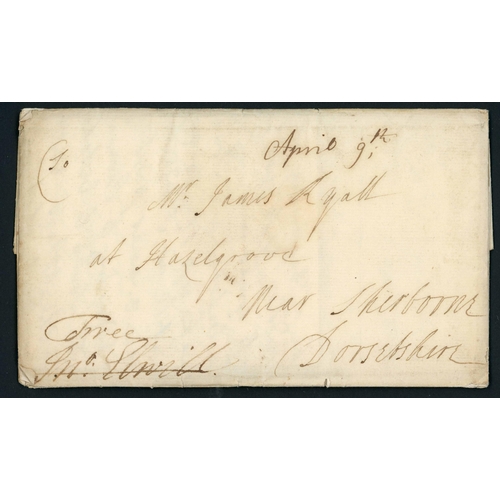 April 9th
To
Mr. James Ryall
at Hazelgrove
Near Sherborne
Dorsetshire
Free
Jno. Elwill.